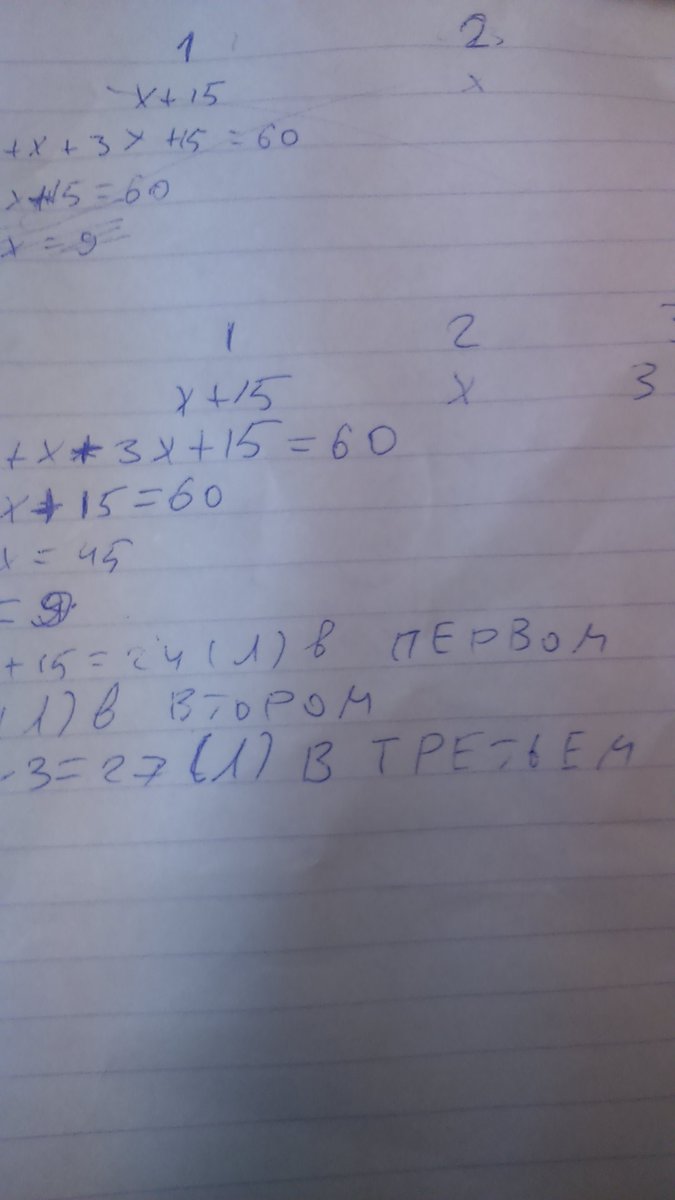 1 2.
x+15 x
+x+3x+15=60
x+15=60
x=9
1 2
x+15 x 3
+x+3x+15=60
x+15=60
x=45
=9
+15=24(л) в ПЕРВОМ
(л) в ВТОРОМ
·3=27(л) В ТРЕТЬЕМ